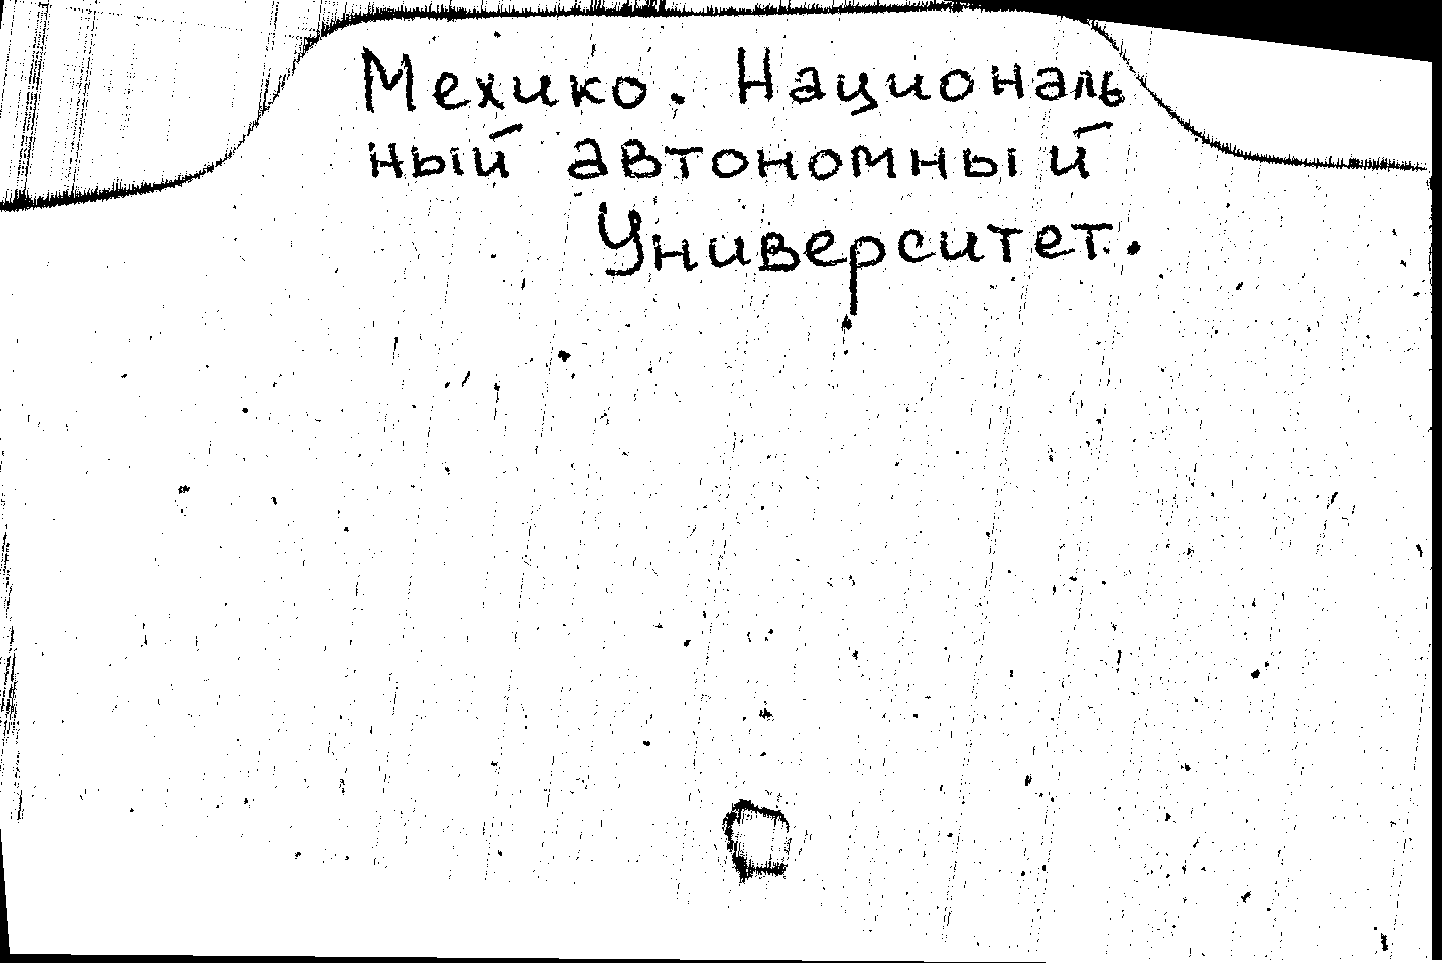 Мехико. Националь
ный автономный
Университет.